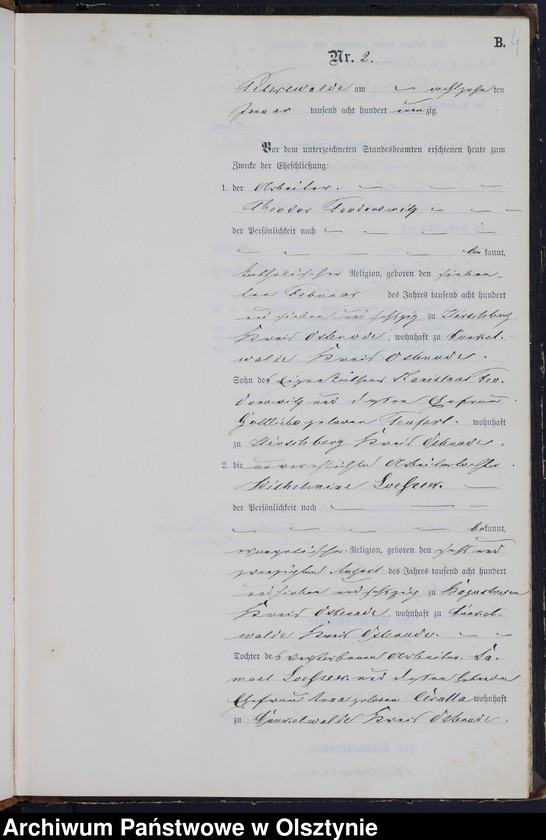 B. 4
Nr. 2.
Peterswalde am achtzehnten
Januar tausend acht hundert neunzig.
Vor dem unterzeichneten Standesbeamten erschienen heute zum
Zwecke der Eheschließung:
1. der Arbeiter
Theodor
der Persönlichkeit nach
bekannt,
katholischer Religion, geboren den sieben
ten Februar des Jahres tausend acht hundert
und sieben und sechszig zu Hirschberg
Kreis Osterode, wohnhaft zu
walde Kreis Osterode.
Sohn des Eigenkäthners
und dessen Ehefrau
geboren wohnhaft
zu Hirschberg Kreis Osterode.
2. die unverehelichte Arbeitertochter
Wilhelmine
der Persönlichkeit nach
bekannt,
evangelischer Religion, geboren den sechs und
zwanzigsten August des Jahres tausend acht hundert
und sieben und sechszig zu
Kreis Osterode, wohnhaft zu
walde Kreis Osterode.
Tochter des verstorbenen Arbeiters Sa-
muel und dessen
Ehefrau Anna geboren wohnhaft
zu Kreis Osterode.
Archiwum Państwowe w Olsztynie